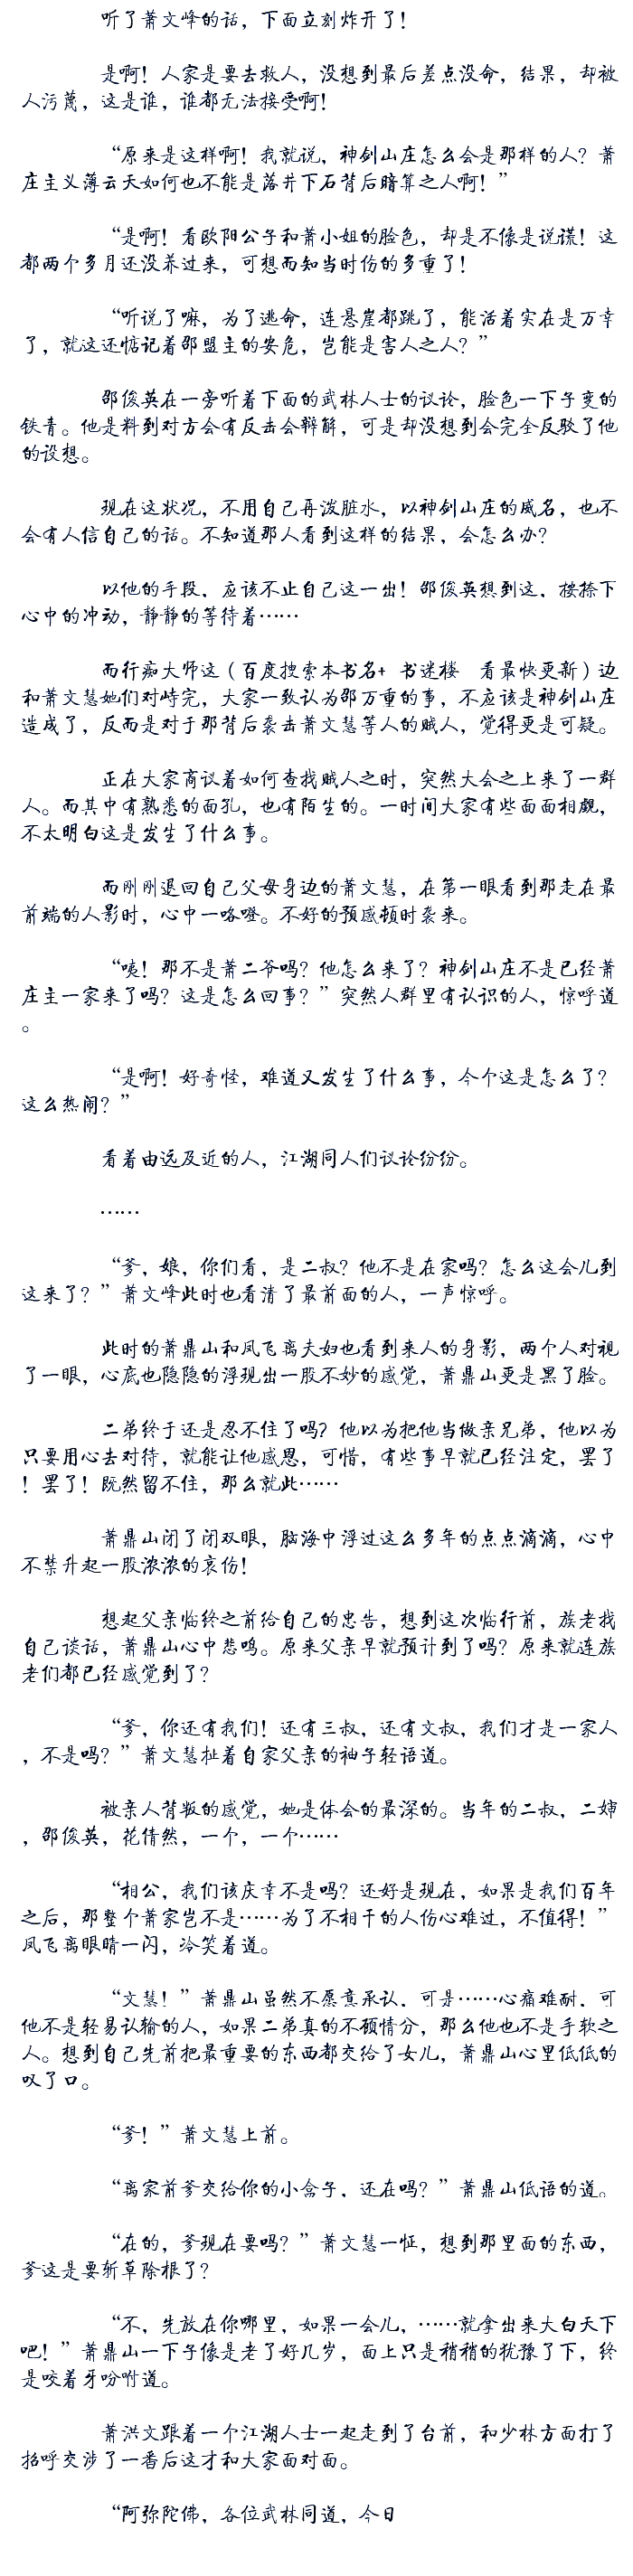 听了萧文峰的话，下面立刻炸开了！
是啊！人家是要去救人，没想到最后差点没命，结果，却被
人污蔑，这是谁，谁都无法接受啊！
“原来是这样啊！我就说，神剑山庄怎么会是那样的人？萧
庄主义薄云天如何也不能是落井下石背后暗算之人啊！”
“是啊！看欧阳公子和萧小姐的脸色，却是不像是说谎！这
都两个多月还没养过来，可想而知当时伤的多重了！
“听说了嘛，为了逃命，连悬崖都跳了，能活着实在是万幸
了，就这还惦记着邵盟主的安危，岂能是害人之人？”
邵俊英在一旁听着下面的武林人士的议论，脸色一下子变的
铁青。他是料到对方会有反击会辩解，可是却没想到会完全反驳了他
的设想。
现在这状况，不用自己再泼脏水，以神剑山庄的威名，也不
会有人信自己的话。不知道那人看到这样的结果，会怎么办？
以他的手段，应该不止自己这一出！邵俊英想到这，按捺下
心中的冲动，静静的等待着……
而行痴大师这（百度搜索本书名+ 书迷楼 看最快更新）边
和萧文慧她们对峙完，大家一致认为邵万重的事，不应该是神剑山庄
造成了，反而是对于那背后袭击萧文慧等人的贼人，觉得更是可疑。
正在大家商议着如何查找贼人之时，突然大会之上来了一群
人。而其中有熟悉的面孔，也有陌生的。一时间大家有些面面相觑，
不太明白这是发生了什么事。
而刚刚退回自己父母身边的萧文慧，在第一眼看到那走在最
前端的人影时，心中一咯噔。不好的预感顿时袭来。
“咦！那不是萧二爷吗？他怎么来了？神剑山庄不是已经萧
庄主一家来了吗？这是怎么回事？”突然人群里有认识的人，惊呼道
。
“是啊！好奇怪，难道又发生了什么事，今个这是怎么了？
这么热闹？”
看着由远及近的人，江湖同人们议论纷纷。
……
“爹，娘，你们看，是二叔？他不是在家吗？怎么这会儿到
这来了？”萧文峰此时也看清了最前面的人，一声惊呼。
此时的萧鼎山和凤飞离夫妇也看到来人的身影，两个人对视
了一眼，心底也隐隐的浮现出一股不妙的感觉，萧鼎山更是黑了脸。
二弟终于还是忍不住了吗？他以为把他当做亲兄弟，他以为
只要用心去对待，就能让他感恩，可惜，有些事早就已经注定，罢了
！罢了！既然留不住，那么就此……
萧鼎山闭了闭双眼，脑海中浮过这么多年的点点滴滴，心中
不禁升起一股浓浓的哀伤！
想起父亲临终之前给自己的忠告，想到这次临行前，族老找
自己谈话，萧鼎山心中悲鸣。原来父亲早就预计到了吗？原来就连族
老们都已经感觉到了？
“爹，你还有我们！还有三叔，还有文叔，我们才是一家人
，不是吗？”萧文慧扯着自家父亲的袖子轻语道。
被亲人背叛的感觉，她是体会的最深的。当年的二叔，二婶
，邵俊英，花倩然，一个，一个……
“相公，我们该庆幸不是吗？还好是现在，如果是我们百年
之后，那整个萧家岂不是……为了不相干的人伤心难过，不值得！”
凤飞离眼睛一闪，冷笑着道。
“文慧！”萧鼎山虽然不愿意承认，可是……心痛难耐，可
他不是轻易认输的人，如果二弟真的不顾情分，那么他也不是手软之
人。想到自己先前把最重要的东西都交给了女儿，萧鼎山心里低低的
叹了口。
“爹！”萧文慧上前。
“离家前爹交给你的小盒子，还在吗？”萧鼎山低语的道。
“在的，爹现在要吗？”萧文慧一怔，想到那里面的东西，
爹这是要斩草除根了？
“不，先放在你哪里，如果一会儿，……就拿出来大白天下
吧！”萧鼎山一下子像是老了好几岁，面上只是稍稍的犹豫了下，终
是咬着牙吩咐道。
萧洪文跟着一个江湖人士一起走到了台前，和少林方面打了
招呼交涉了一番后这才和大家面对面。
“阿弥陀佛，各位武林同道，今日